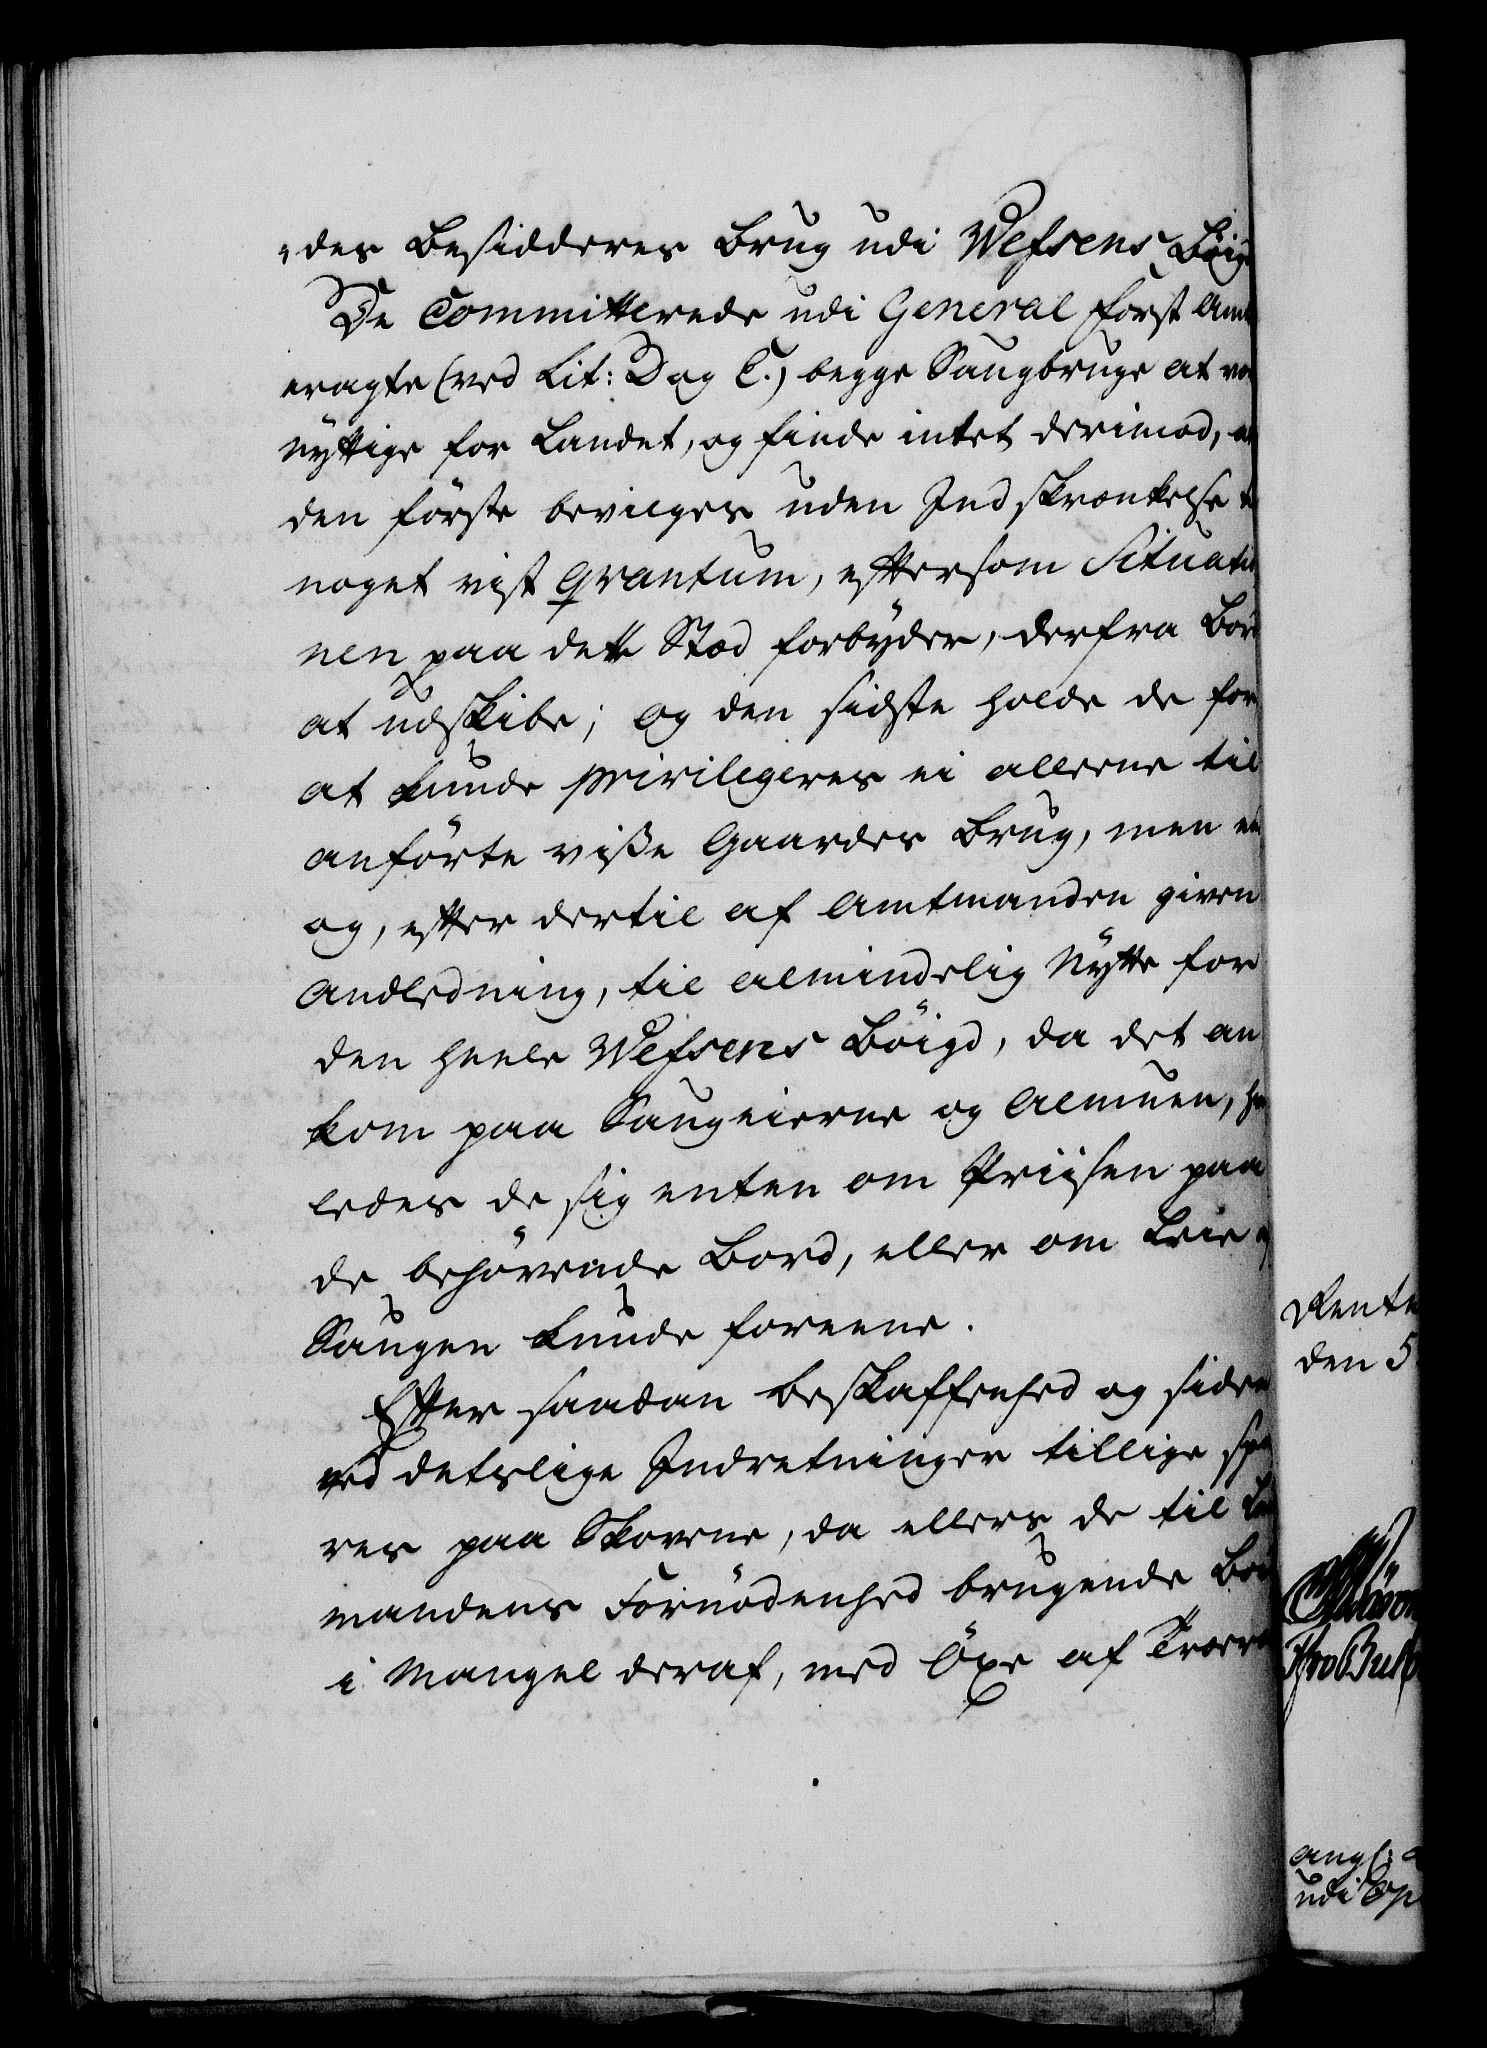 des Besidderes Brug udi Wefsens Böig
De Committerede udi General Forst Amt
eragte (ved Lit: D og E.) begge Saugbruge at væ
nyttige for Landet, og finde intet derimod, at
den förste bevilges uden Indskrænkelse t
noget vist qvantum, eftersom Situatio
nen paa dette Stæd forbyder, derfra Bord
at udskibe; og den sidste holde de for
at kunde privilegeres ei alleene til
anförte viße Gaardes Brug, men en
og, efter dertil af Amtmanden given
Andledning, til almindelig Nytte for
den heele Wefsens Böigd, da det an
kom paa Saugeierne og Almuen, hvor
ledes de sig enten om Priisen paa
de behövende Bord, eller om Leie af
Saugen kunde foreene.
Efter saadan Beskaffenhed og siden
ved deslige Indretninger tillige spa
res paa Skovene, da ellers de til
mandens Fornödenhed brugende Bord
i Mangel deraf, med Öxe af Træer
Rente
den 5
angl:
udi Op